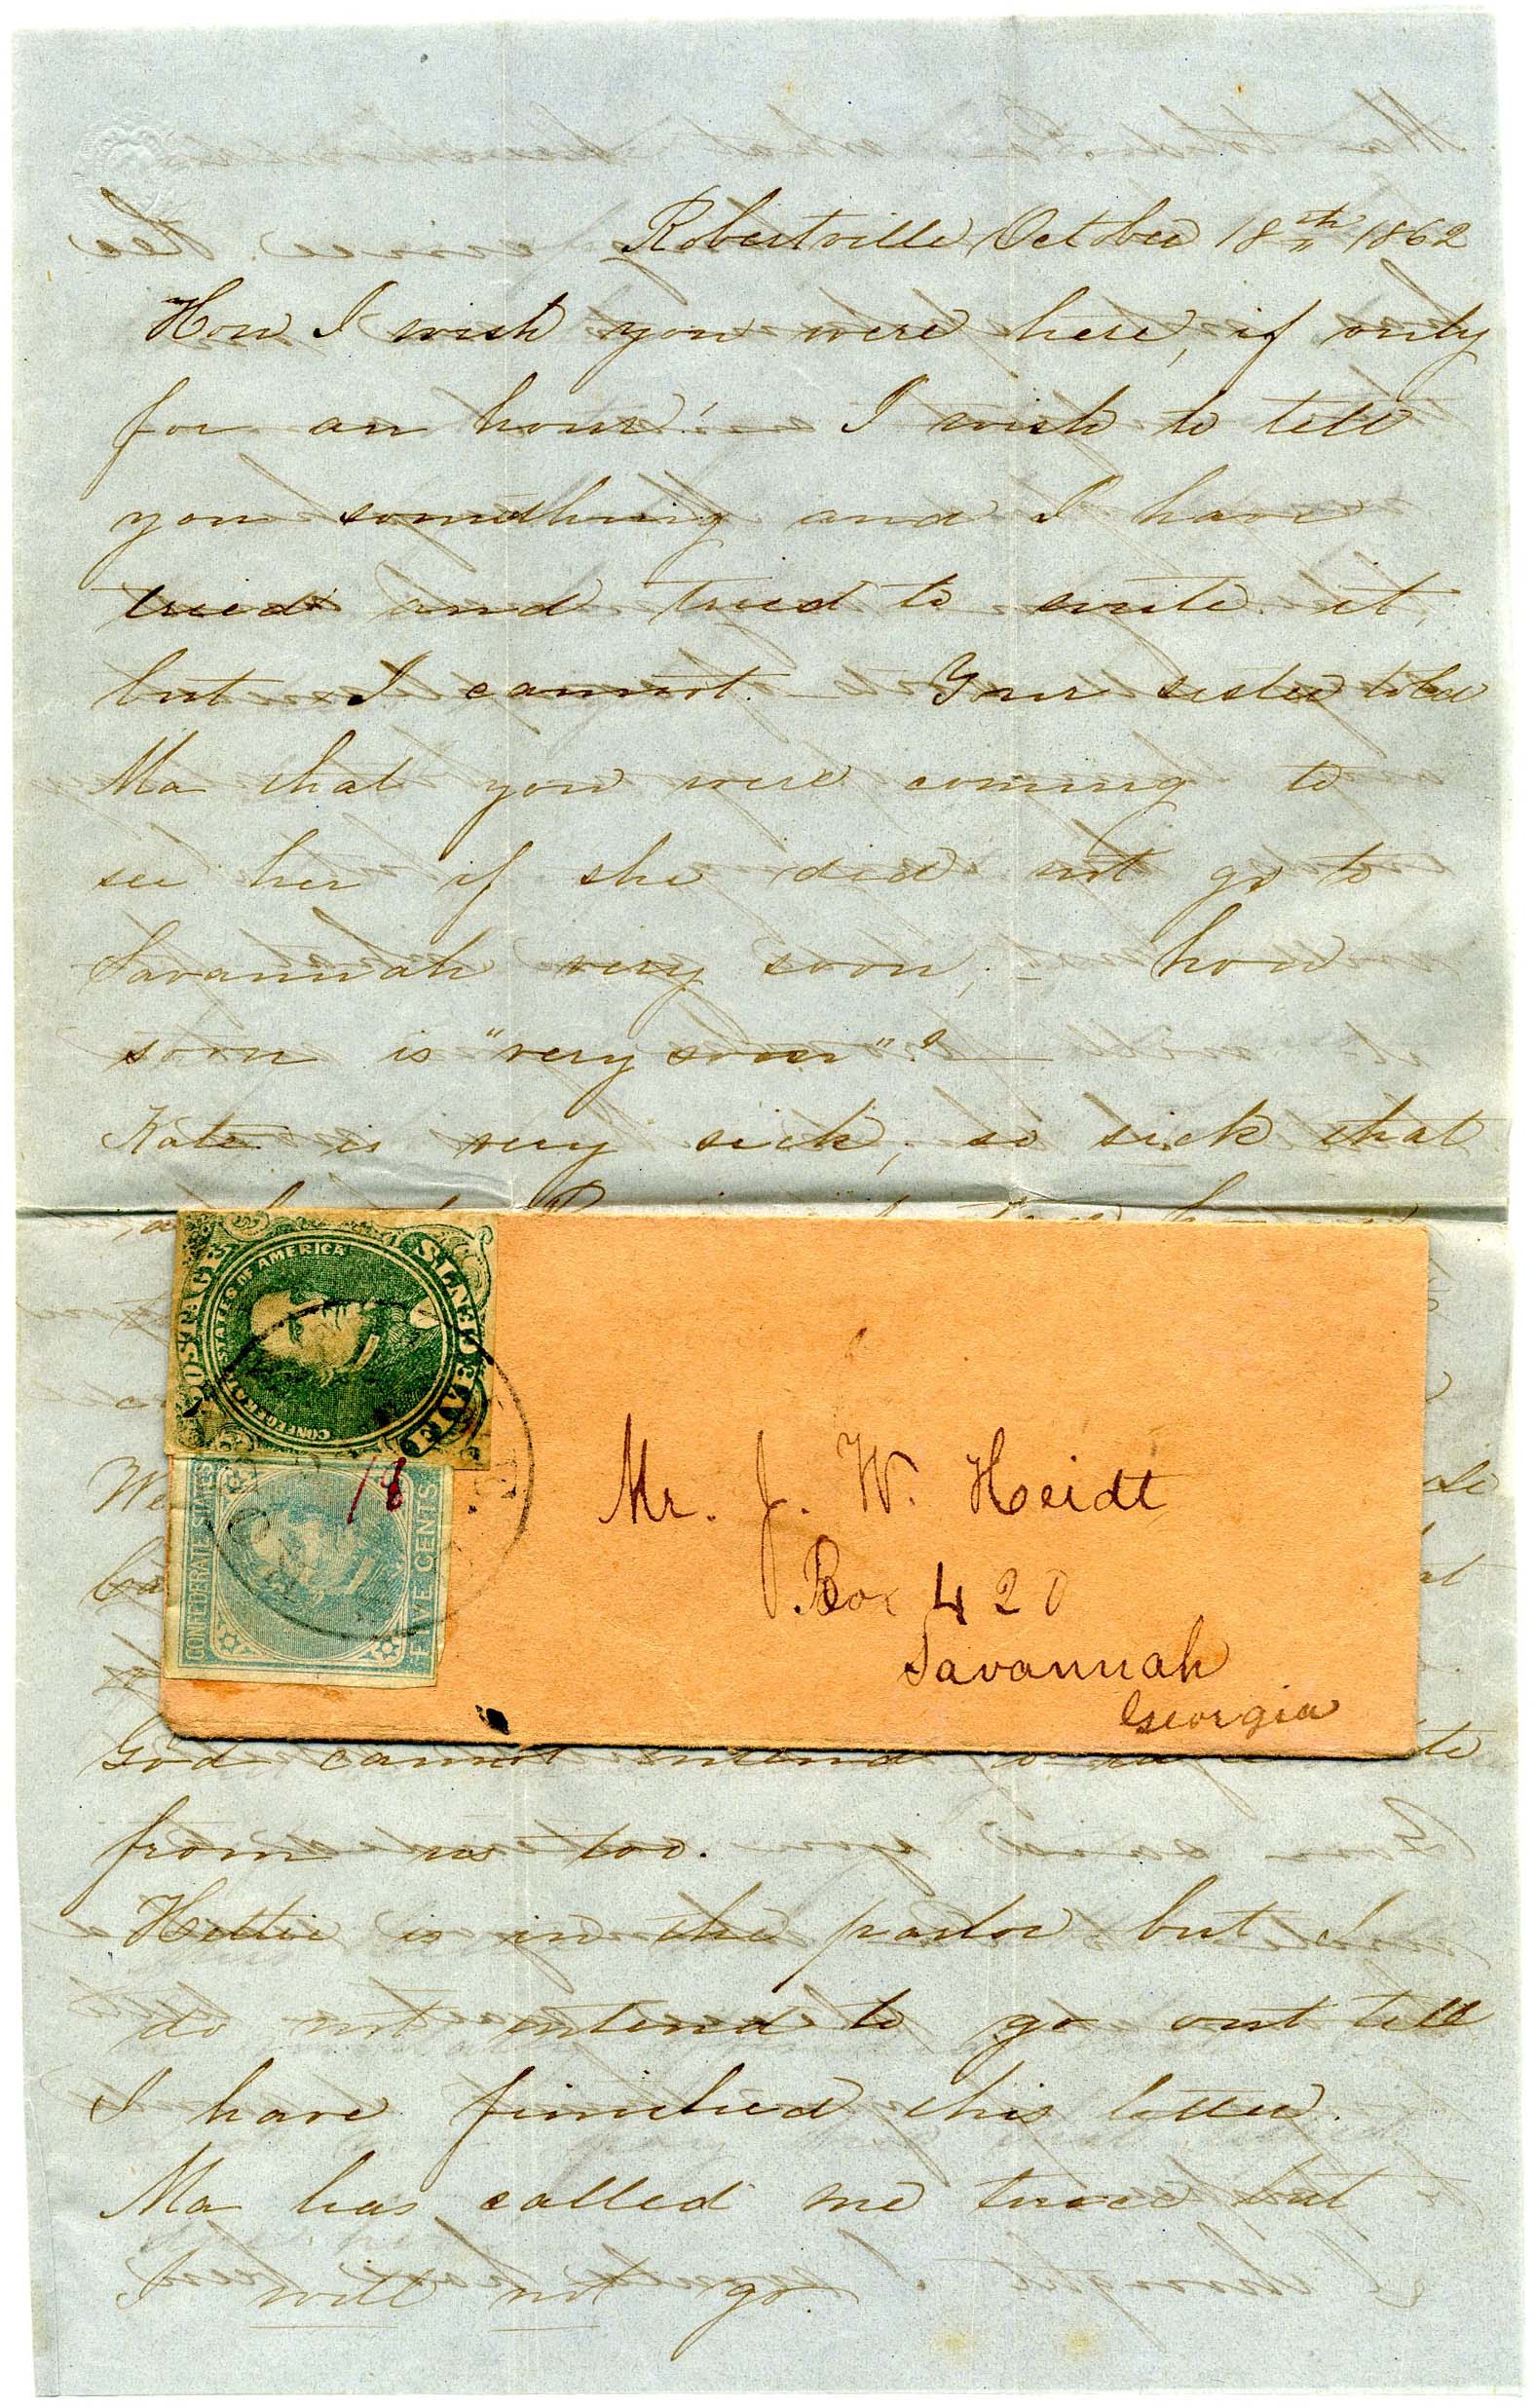 Robertville October 18th 1862
How I wish you were here, if only
for an hour! — I wish to tell
you something and I have
tried and tried to write it,
but I cannot. — Your sister told
Ma that you were coming to
see her if she did not go to
Savannah very soon, — how
soon is "very soon"?
Kate is very sick, so sick that
POSTAGE
CONFEDERATE STATES OF AMERICA
FIVE CENTS
18
CONFEDERATE STATES
FIVE CENTS
Mr. J. W. Heidt
Box 420
Savannah
Georgia
We
God cannot intend to
from us too.
Hettie is in the parlor but I
do not intend to go out till
I have finished this letter.
Ma has called me twice but
I will not go.